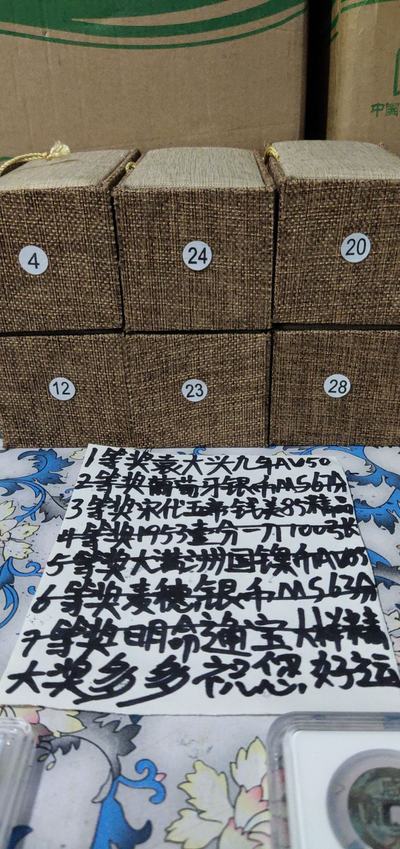 中国
4
24
20
12
23
28
1等奖袁大头九年AU50
2等奖葡萄牙银币MS62分
3等奖宋代五帝钱美85精品
4等奖1953壹分一刀100张
5等奖大满洲国镍币AU05
6等奖麦穗银币MS62分
7等奖明命通宝大样精
大奖多多祝您好运